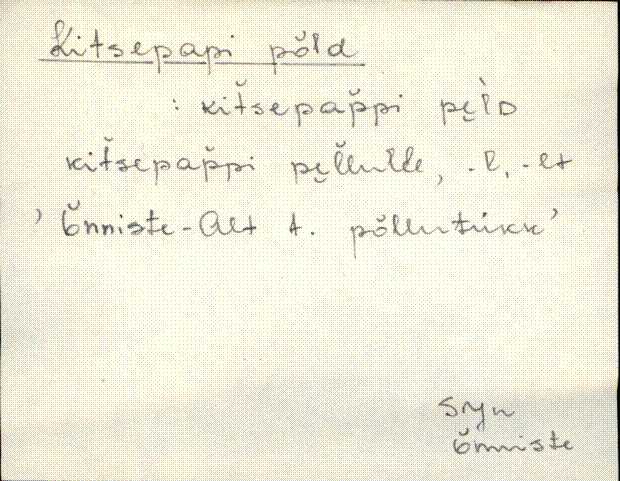 Kitsepapi põld
: kit̆sepap̆pi pe̮l̀D
kit̆sepap̆pi pe̮l̆lulle, -l, -lt
' Õnniste-Alt t. põllutükk'
Syn
Õnniste